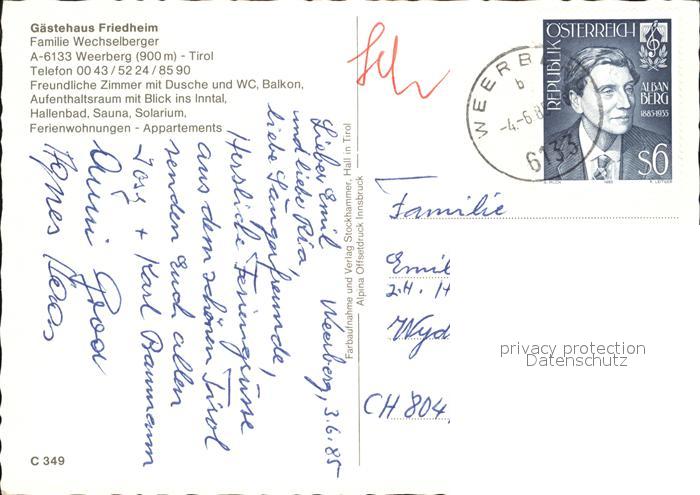 Gästehaus Friedheim
Familie Wechselberger
A-6133 Weerberg (900 m) - Tirol
Telefon 00 43 / 52 24 / 85 90
Freundliche Zimmer mit Dusche und WC, Balkon,
Aufenthaltsraum mit Blick ins Inntal,
Hallenbad, Sauna, Solarium,
Ferienwohnungen - Appartements
Weerberg, 3.6.85
Lieber Emil
und liebe Rita,
liebe Sängerfreunde,
Herzliche Feriengrüsse
aus dem schönen Tirol
senden Euch allen
+ Karl Baumann
Agnes
C 349
Farbaufnahme und Verlag Stockhammer, Hall in Tirol
Alpina Offsetdruck Innsbruck
REPUBLIK ÖSTERREICH
ALBAN
BERG
1885-1935
S6
1985
WEERB
b
-4.-6.85
6133
Familie
Emil
z.H. H
Wyd
CH 804
privacy protection
Datenschutz